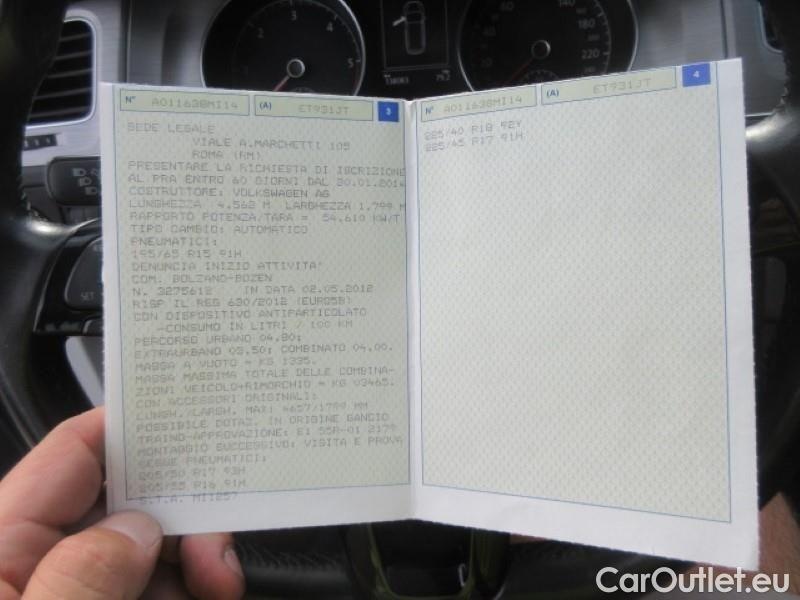 N° A011638MI14 (A) ET931JT 3
SEDE LEGALE
VIALE A.MARCHETTI 105
ROMA (RM)
PRESENTARE LA RICHIESTA DI ISCRIZIONE
AL PRA ENTRO 60 GIORNI DAL
COSTRUTTORE: VOLKSWAGEN AG
LUNGHEZZA 4.562 M LARGHEZZA 1.799 M
RAPPORTO POTENZA/TARA = 54.610 KW/T
TIPO CAMBIO: AUTOMATICO
PNEUMATICI:
195/65 R15 91H
DENUNCIA INIZIO ATTIVITA'
COM. BOLZANO-BOZEN
N. 3275612 IN DATA 02.05.2012
RISP IL REG 630/2012 (EURO5B)
CON DISPOSITIVO ANTIPARTICOLATO
-CONSUMO IN LITRI / 100 KM
PERCORSO URBANO 04.80;
EXTRAURBANO 03.50; COMBINATO 04.00.
MASSA A VUOTO = KG 1335.
MASSA MASSIMA TOTALE DELLE COMBINA-
ZIONI VEICOLO+RIMORCHIO = KG 03465.
CON ACCESSORI ORIGINALI:
LUNGH./LARGH. MAX: 4657/1799 MM
POSSIBILE DOTAZ. IN ORIGINE GANCIO
TRAINO-APPROVAZIONE: E1 55R-01 2179
MONTAGGIO SUCCESSIVO: VISITA E PROVA
SEGUE PNEUMATICI:
205/50 R17 93H
205/55 R16 91H
S.T.A. MI1257
N° A011638MI14 (A) ET931JT 4
225/40 R18 92Y
225/45 R17 91H
5
140
180
220
SET
CarOutlet.eu